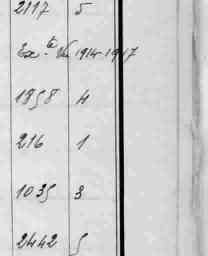 2117 5
Ex-te Vie 1914-1917
1858 4
216 1
1035 3
2442 5